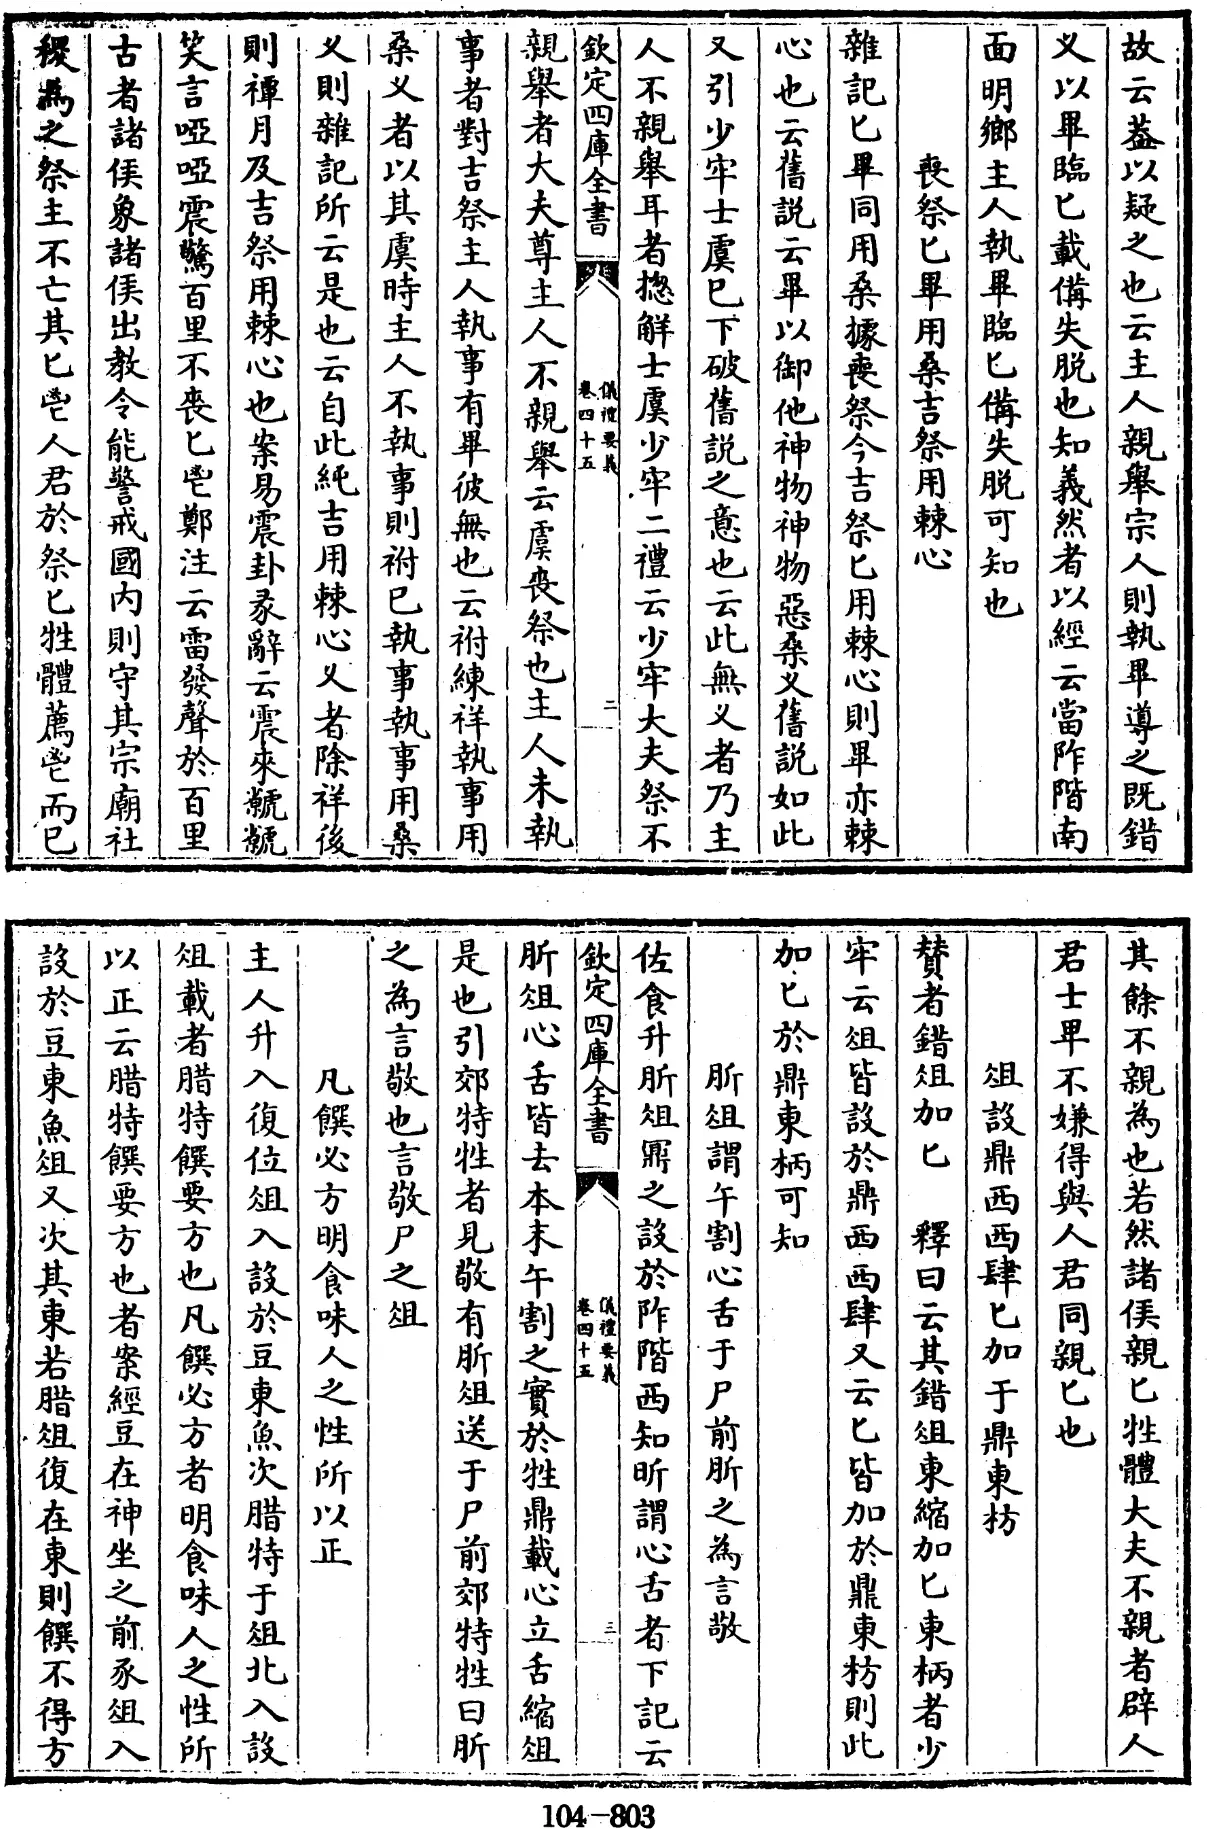 故云葢以疑之也云主人親舉宗人則執畢導之既錯
义以畢臨匕載備失脱也知義然者以經云當阼階南
面明鄉主人執畢臨匕備失脱可知也
喪祭匕畢用桑吉祭用棘心
雜記匕畢同用桑據喪祭今吉祭匕用棘心則畢亦棘
心也云舊説云畢以御他神物神物惡桑义舊説如此
又引少牢士虞已下破舊説之意也云此無义者乃主
人不親舉耳者揔解士虞少牢二禮云少牢大夫祭不
欽定四庫全書
儀禮要義
卷四十五
二
親舉者大夫尊主人不親舉云虞喪祭也主人未執
事者對吉祭主人執事有畢彼無也云祔練祥執事用
桑义者以其虞時主人不執事則祔已執事執事用桑
义則雜記所云是也云自此純吉用棘心义者除祥後
則禫月及吉祭用棘心也案易震卦彖辭云震來虩虩
笑言啞啞震驚百里不喪匕鬯鄭注云雷發聲於百里
古者諸侯象諸侯出教令能警戒國内則守其宗廟社
稷為之祭主不亡其匕鬯人君於祭匕牲體薦鬯而已
其餘不親為也若然諸侯親匕牲體大夫不親者辟人
君士卑不嫌得與人君同親匕也
俎設鼎西西肆匕加于鼎東枋
賛者錯俎加匕　釋曰云其錯俎東縮加匕東柄者少
牢云俎皆設於鼎西西肆又云匕皆加於鼎東枋則此
加匕於鼎東柄可知
肵俎謂午割心舌于尸前肵之為言敬
佐食升肵俎鼏之設於阼階西知肵謂心舌者下記云
欽定四庫全書
儀禮要義
卷四十五
三
肵俎心舌皆去本末午割之實於牲鼎載心立舌縮俎
是也引郊特牲者見敬有肵俎送于尸前郊特牲曰肵
之為言敬也言敬尸之俎
凡饌必方明食味人之性所以正
主人升入復位俎入設於豆東魚次腊特于俎北入設
俎載者腊特饌要方也凡饌必方者明食味人之性所
以正云腊特饌要方也者案經豆在神坐之前豕俎入
設於豆東魚俎又次其東若腊俎復在東則饌不得方
104-803